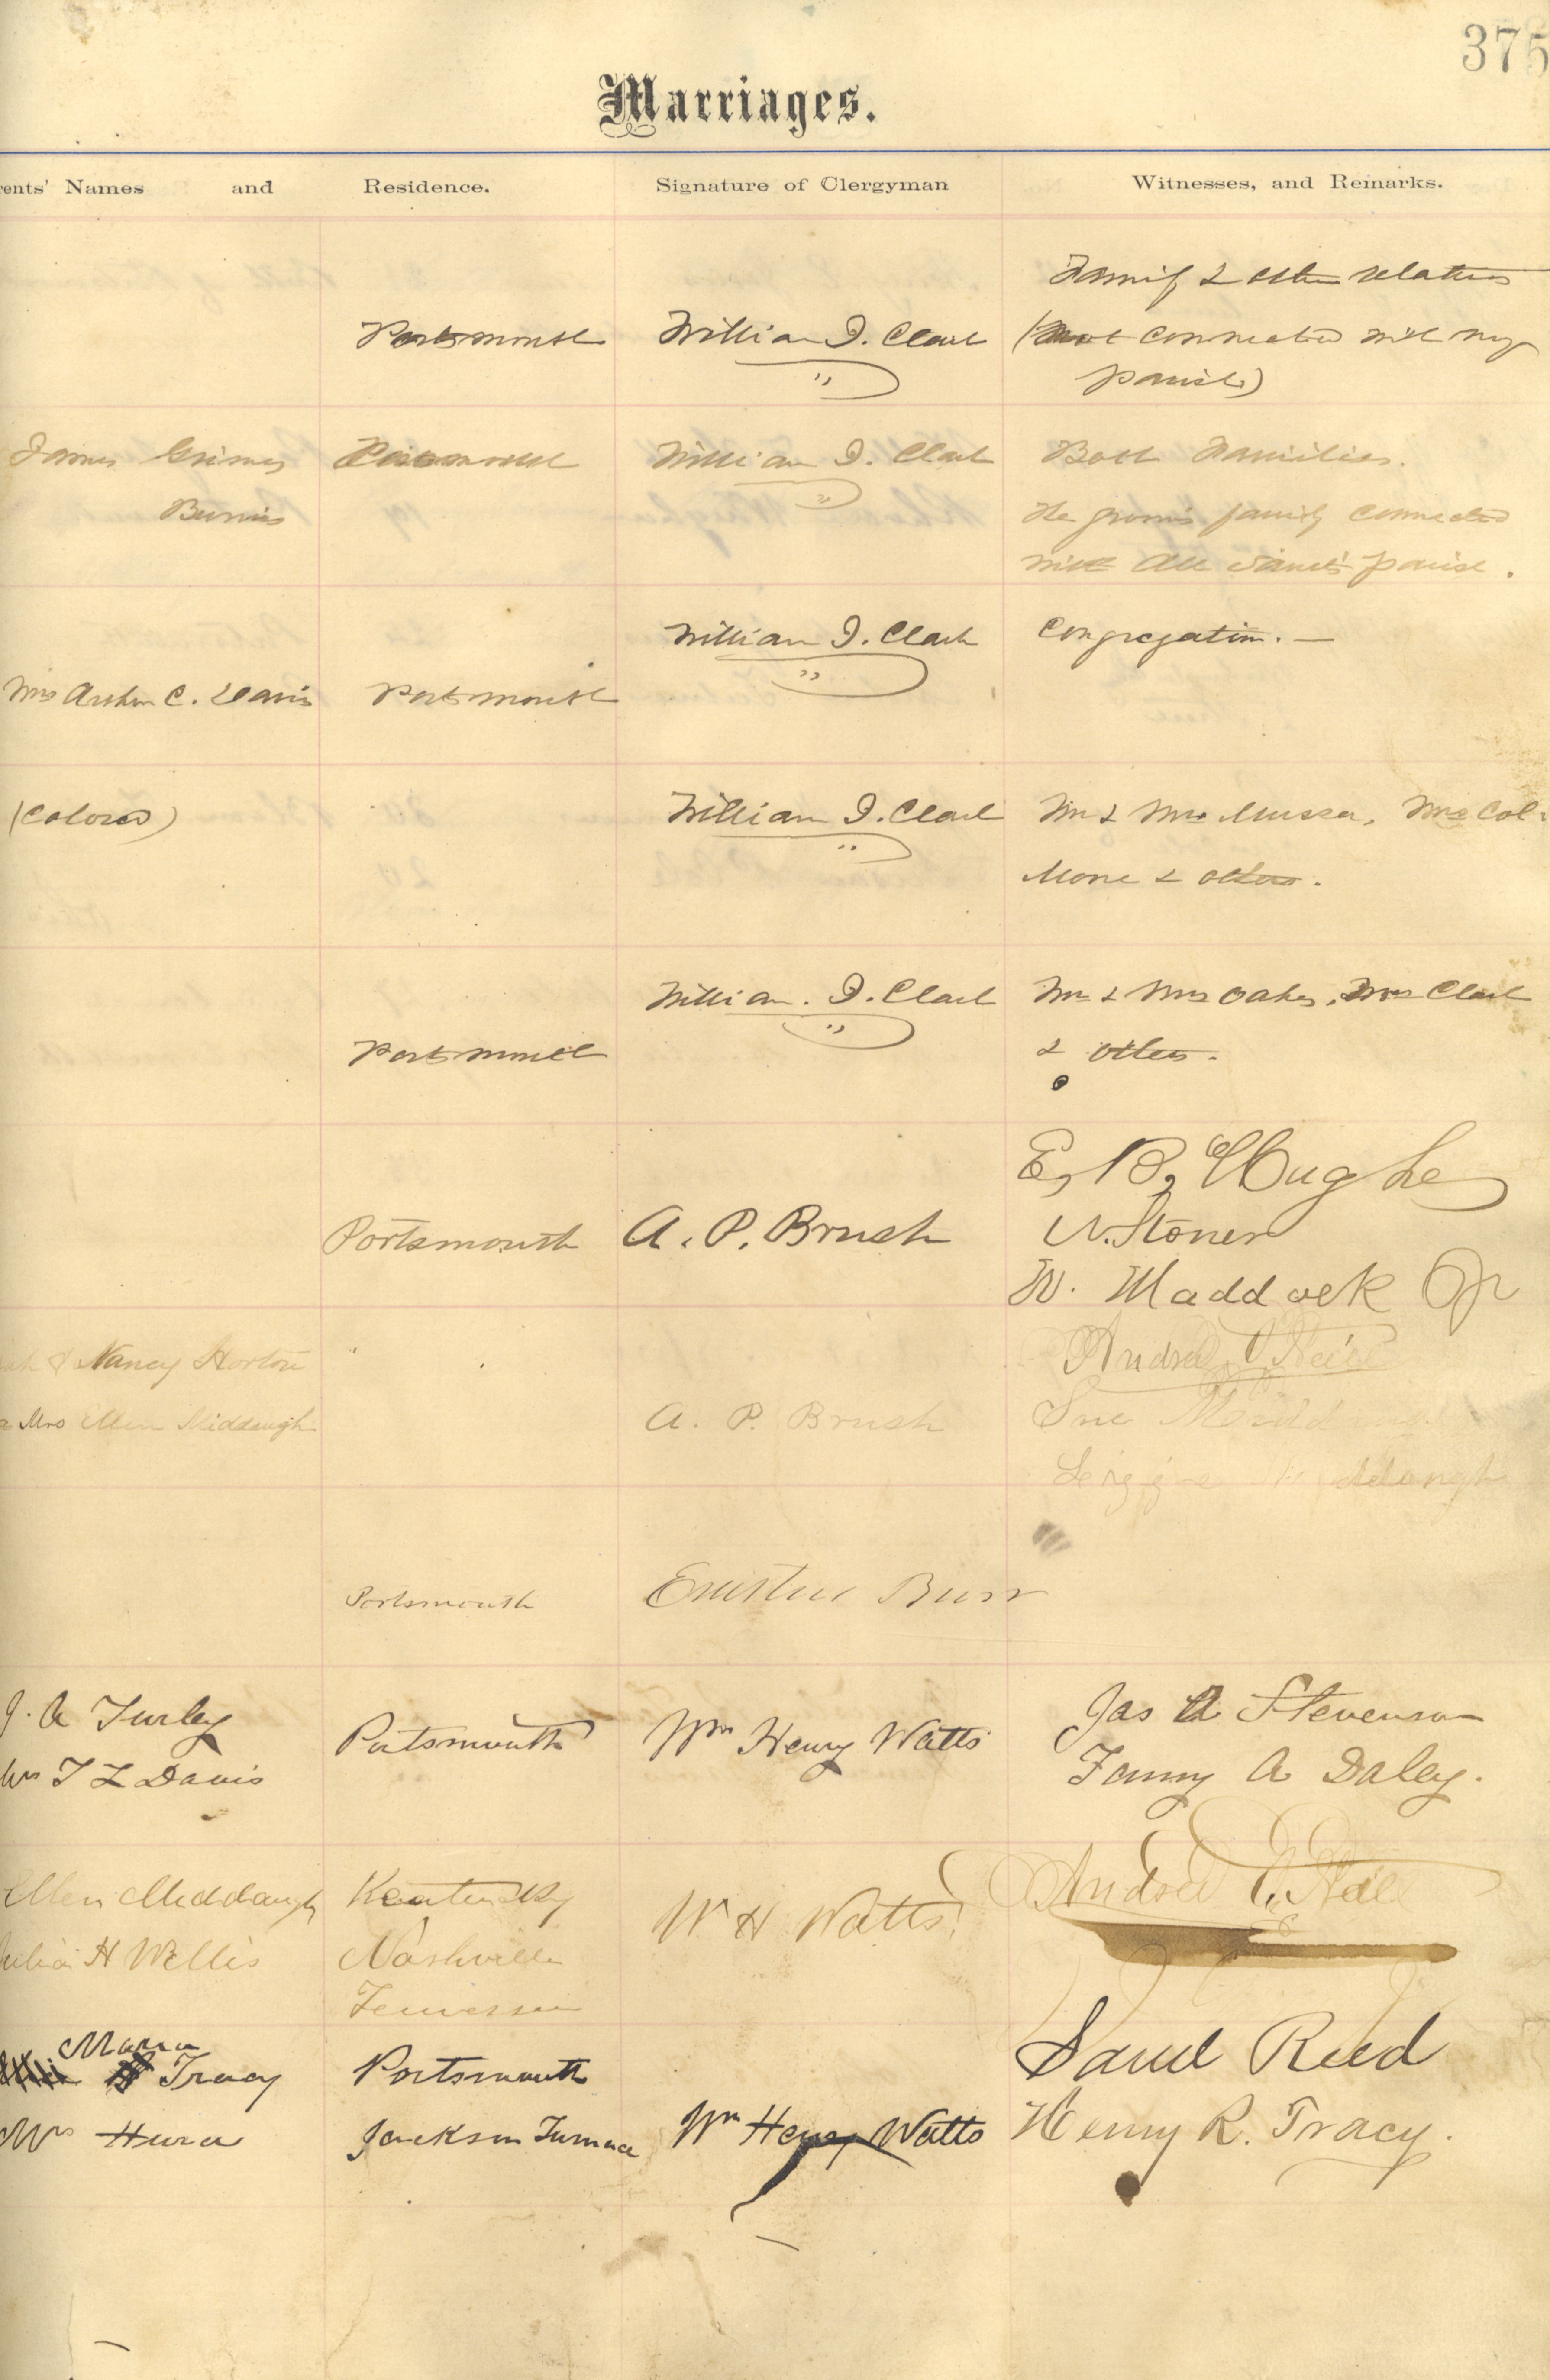 375
Marriages.
ents' Names and Residence. Signature of Clergyman Witnesses, and Remarks.
Family & other relatives
Portsmouth William I. Clark (not connected with my
parish)
James Grimes Portsmouth William I. Clark Both Families.
Burris The groom's family connected
with All Saints' parish.
William I. Clark Congregation. —
Mrs Arthur C. Davis Portsmouth
(Colored) William I. Clark Mr & Mrs Musser, Mrs Col-
& others.
William. I. Clark Mr & Mrs Oakes, Mrs Clark
Portsmouth & others.
E, B, Hughe
Portsmouth A. P. Brush Stoner
W. Maddock Jr
& Nancy Horton
Mrs Ellen Middaugh A. P. Brush Sue
Portsmouth Burr
J. A Turley Jas A Stevenson
Portsmouth Wm Henry Watts
Mrs T L Davis Fanny A Daley.
Ellen Middaugh Kentucky
W H Watts
Julia H Willis Nashville
Tennessee
Maria Saml Reed
Tracy Portsmouth
Mrs Jackson Furnace Wm Henry Watts Henry R. Tracy.